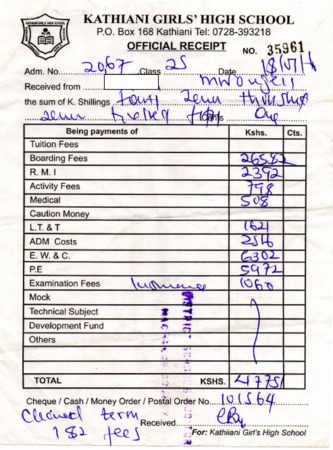 KATHIANI GIRLS' HIGH SCHOOL
P.O. Box 168 Kathiani Tel: 0728-393218
OFFICIAL RECEIPT NO. 35961
Adm. No. 2067 Class 2S Date
Received from
the sum of K. Shillings Fourty Seven thousand
Seven hundred fifty One
Being payments of Kshs. Cts.
Tuition Fees
Boarding Fees 26582
R. M. I 2392
Activity Fees 798
Medical 508
Caution Money
L.T. & T 1621
ADM Costs 2516
E. W. & C. 6302
P.E 5972
Examination Fees 1060
Mock
Technical Subject
Development Fund
Others
TOTAL KSHS. 47751
Cheque / Cash / Money Order / Postal Order No. 101564
Cleared term Received
1 & 2 fees For: Kathiani Girl's High School